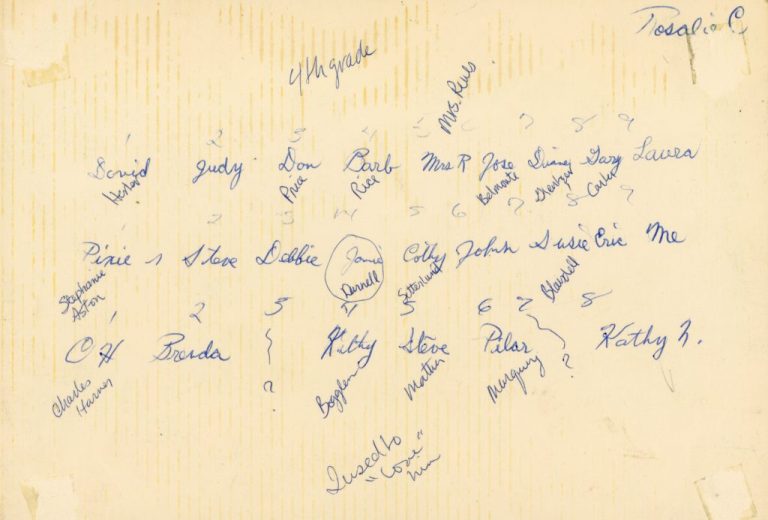 Rosalie C.
4th grade
Mrs. Reuls
1 2 3 4 5 6 7 8 9
David Judy Don Barb Mrs R Jose Diane Gary Laura
Price Rice Belmonte Carter
2 3 4 5 6 7 8 9
Pixie Steve Debbie Jamie Cathy John Susie Eric Me
Stephanie Aston Darnell Blaisdell
1 2 3 4 5 6 7 8
C H Brenda ? Kathy Steve Pilar ? Kathy N.
Charles Martin
I used to
"love"
him